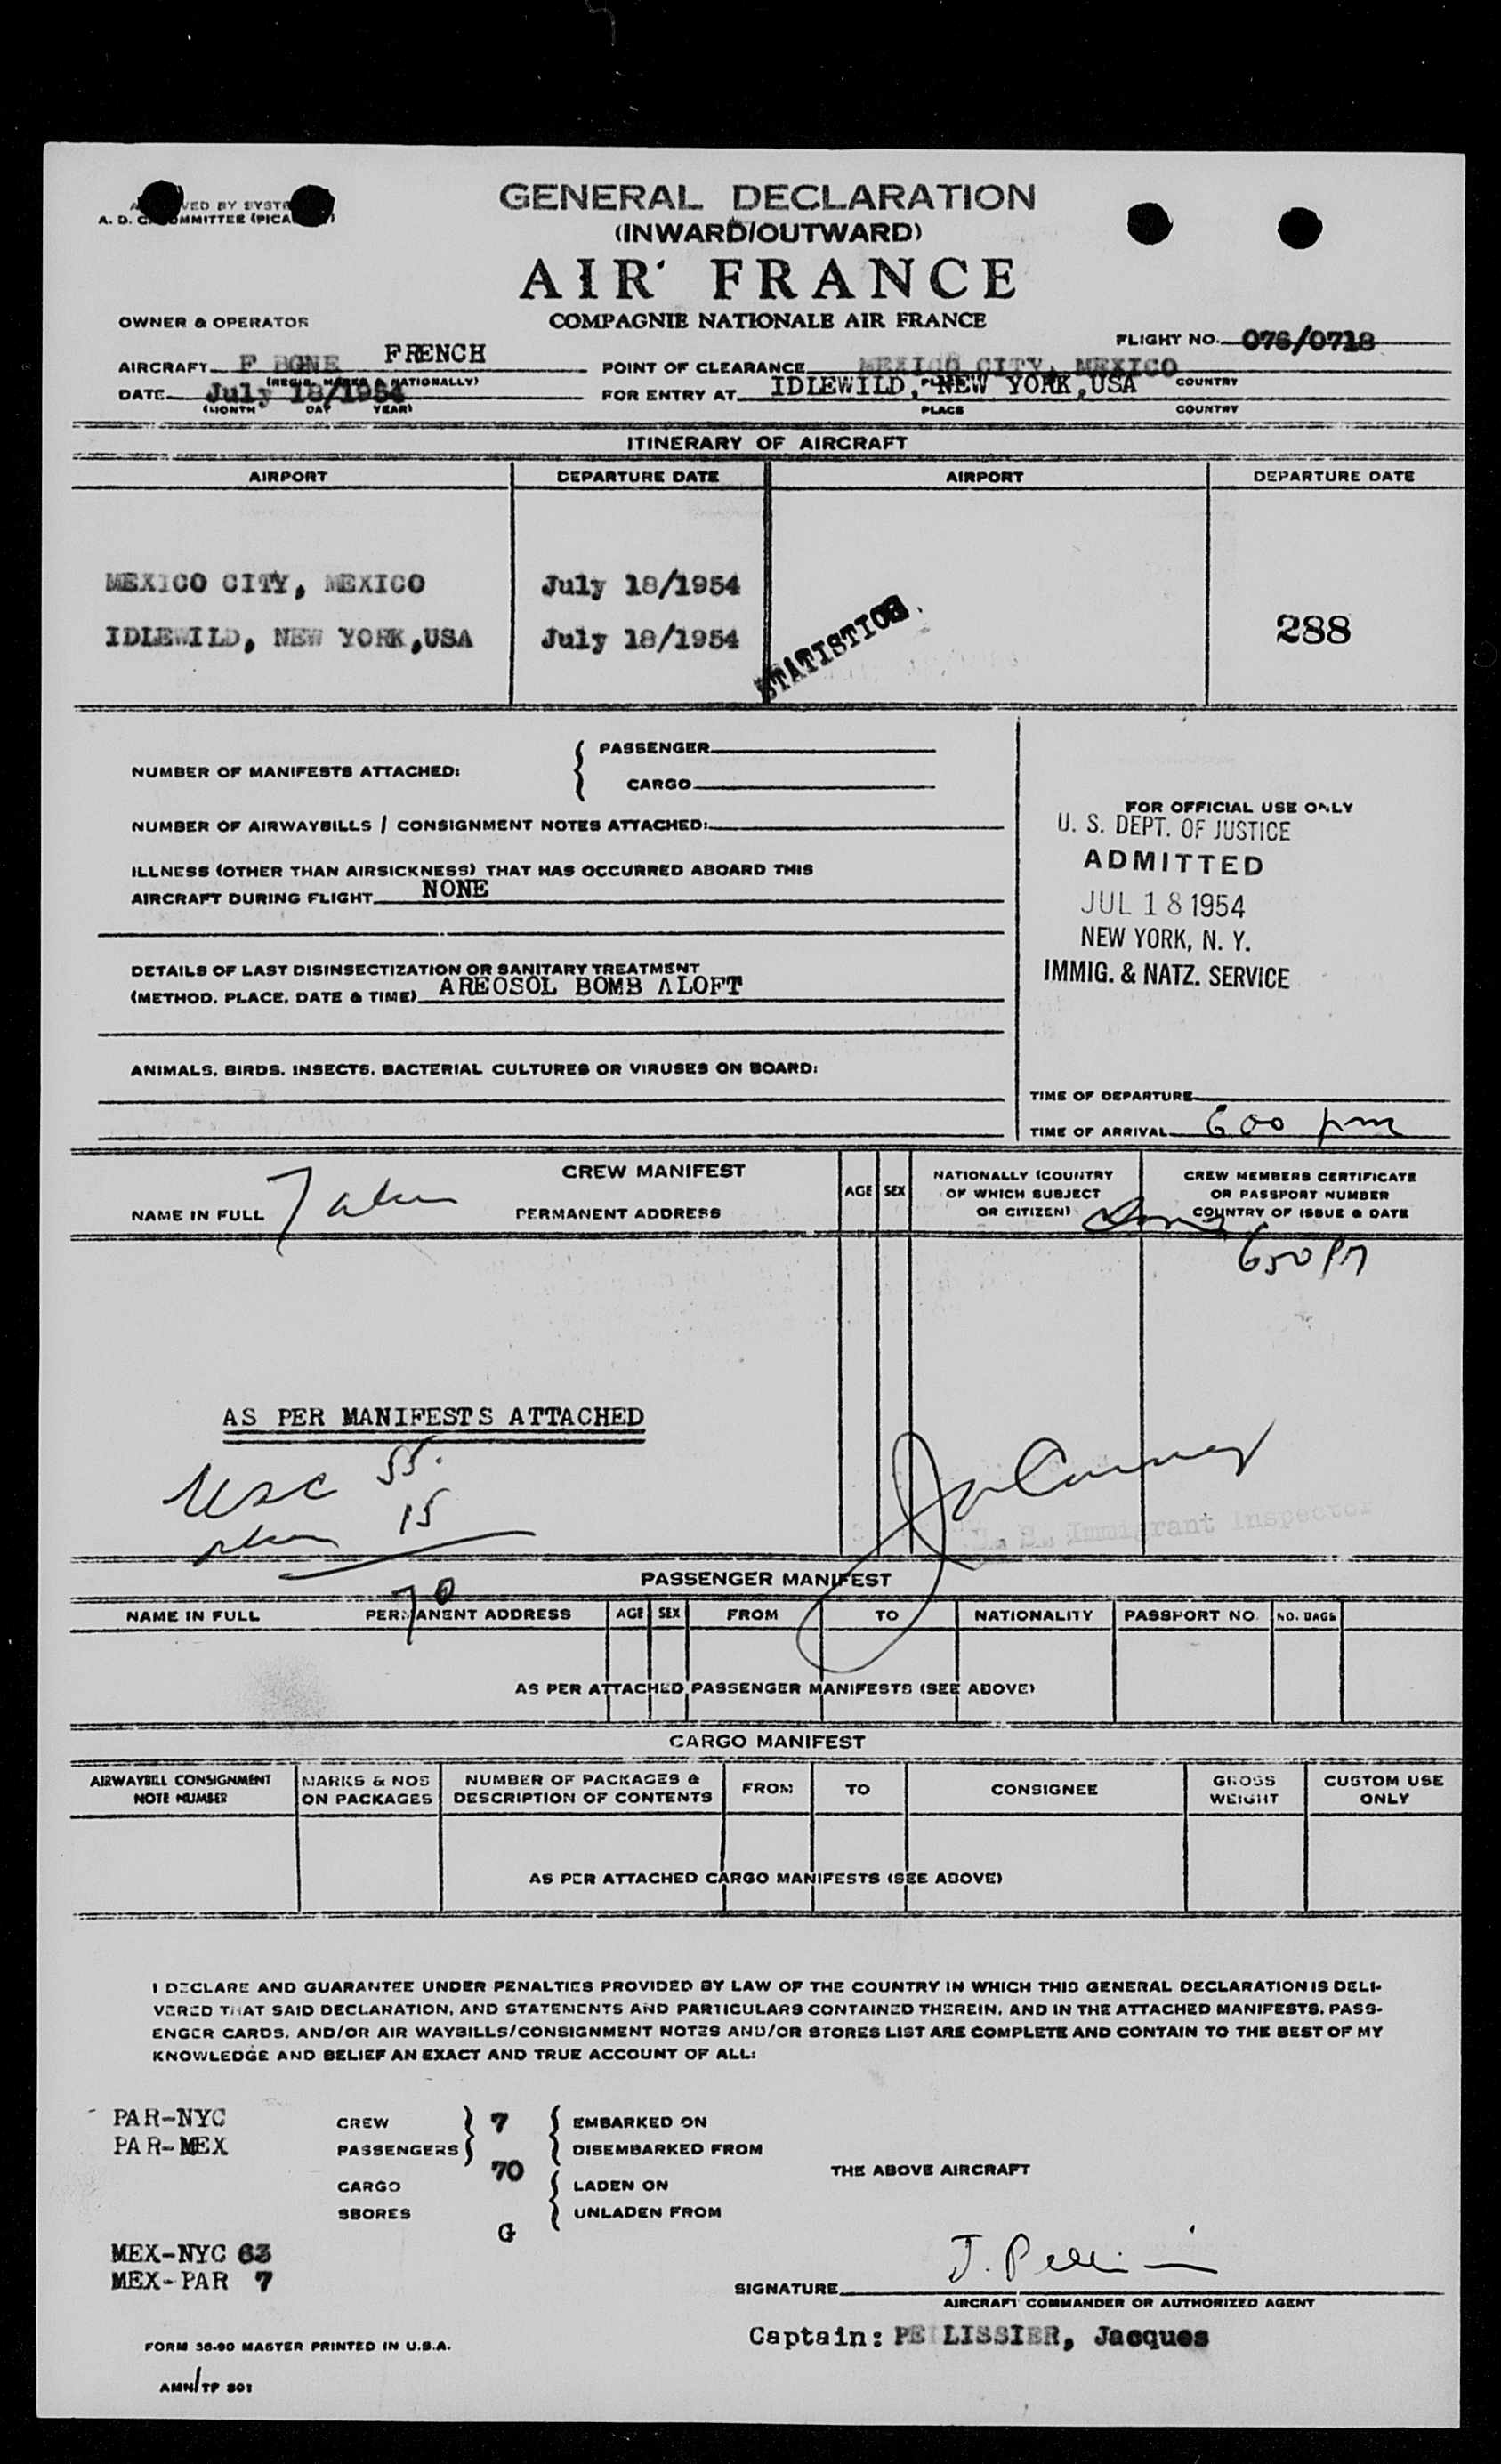 GENERAL DECLARATION
(INWARD/OUTWARD)
AIR FRANCE
COMPAGNIE NATIONALE AIR FRANCE
A. D. COMMITTEE (PICA
OWNER & OPERATOR
FLIGHT NO. 076/0718
AIRCRAFT F BGNE FRENCH
POINT OF CLEARANCE MEXICO CITY, MEXICO
(REGIS. MARKS & NATIONALLY) PLACE COUNTRY
DATE July 18/1954
FOR ENTRY AT IDLEWILD, NEW YORK,USA
(MONTH DAY YEAR) PLACE COUNTRY
ITINERARY OF AIRCRAFT
AIRPORT DEPARTURE DATE AIRPORT DEPARTURE DATE
MEXICO CITY, MEXICO July 18/1954
IDLEWILD, NEW YORK,USA July 18/1954
STATISTICS
288
NUMBER OF MANIFESTS ATTACHED: { PASSENGER
CARGO
NUMBER OF AIRWAYBILLS / CONSIGNMENT NOTES ATTACHED:
ILLNESS (OTHER THAN AIRSICKNESS) THAT HAS OCCURRED ABOARD THIS
AIRCRAFT DURING FLIGHT NONE
DETAILS OF LAST DISINSECTIZATION OR SANITARY TREATMENT
(METHOD. PLACE. DATE & TIME) AREOSOL BOMB ALOFT
ANIMALS. BIRDS. INSECTS. BACTERIAL CULTURES OR VIRUSES ON BOARD:
FOR OFFICIAL USE ONLY
U. S. DEPT. OF JUSTICE
ADMITTED
JUL 18 1954
NEW YORK, N. Y.
IMMIG. & NATZ. SERVICE
TIME OF DEPARTURE
TIME OF ARRIVAL 600 pm
CREW MANIFEST
NAME IN FULL PERMANENT ADDRESS
AGE SEX
NATIONALLY (COUNTRY
OF WHICH SUBJECT
OR CITIZEN)
CREW MEMBERS CERTIFICATE
OR PASSPORT NUMBER
COUNTRY OF ISSUE & DATE
7
650 PM
AS PER MANIFESTS ATTACHED
USC 55.
15
70
U. S. Immigrant Inspector
PASSENGER MANIFEST
NAME IN FULL PERMANENT ADDRESS AGE SEX FROM TO NATIONALITY PASSPORT NO. NO. BAGS
AS PER ATTACHED PASSENGER MANIFESTS (SEE ABOVE)
CARGO MANIFEST
AIRWAYBILL CONSIGNMENT
NOTE NUMBER
MARKS & NOS
ON PACKAGES
NUMBER OF PACKAGES &
DESCRIPTION OF CONTENTS
FROM TO CONSIGNEE
GROSS
WEIGHT
CUSTOM USE
ONLY
AS PER ATTACHED CARGO MANIFESTS (SEE ABOVE)
I DECLARE AND GUARANTEE UNDER PENALTIES PROVIDED BY LAW OF THE COUNTRY IN WHICH THIS GENERAL DECLARATION IS DELI-
VERED THAT SAID DECLARATION, AND STATEMENTS AND PARTICULARS CONTAINED THEREIN. AND IN THE ATTACHED MANIFESTS. PASS-
ENGER CARDS. AND/OR AIR WAYBILLS/CONSIGNMENT NOTES AND/OR STORES LIST ARE COMPLETE AND CONTAIN TO THE BEST OF MY
KNOWLEDGE AND BELIEF AN EXACT AND TRUE ACCOUNT OF ALL:
PAR-NYC CREW } 7 { EMBARKED ON
PAR-MEX PASSENGERS DISEMBARKED FROM
70
THE ABOVE AIRCRAFT
CARGO { LADEN ON
SBORES UNLADEN FROM
G
MEX-NYC 63
MEX-PAR 7
SIGNATURE J. Pellissier
AIRCRAFT COMMANDER OR AUTHORIZED AGENT
Captain: PELLISSIER, Jacques
FORM 36-90 MASTER PRINTED IN U.S.A.
AMN/TP 801